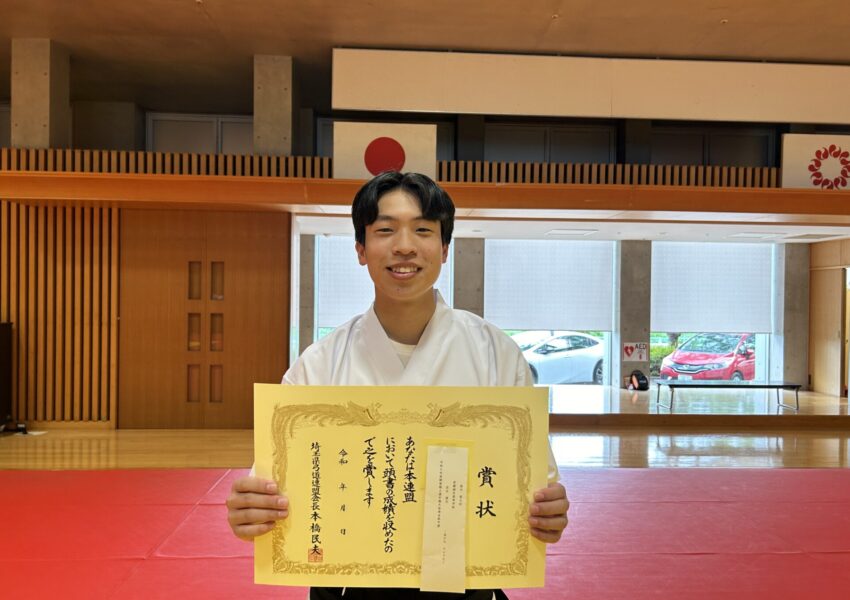 賞状
あなたは本連盟
において頭書の成績を収めたの
で之を賞します
令和　年　月　日
埼玉県弓道連盟会長本橋民夫
AED